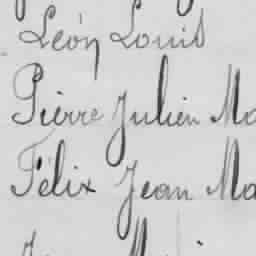 Léon Louis
Pierre Julien Ma
Félix Jean Ma